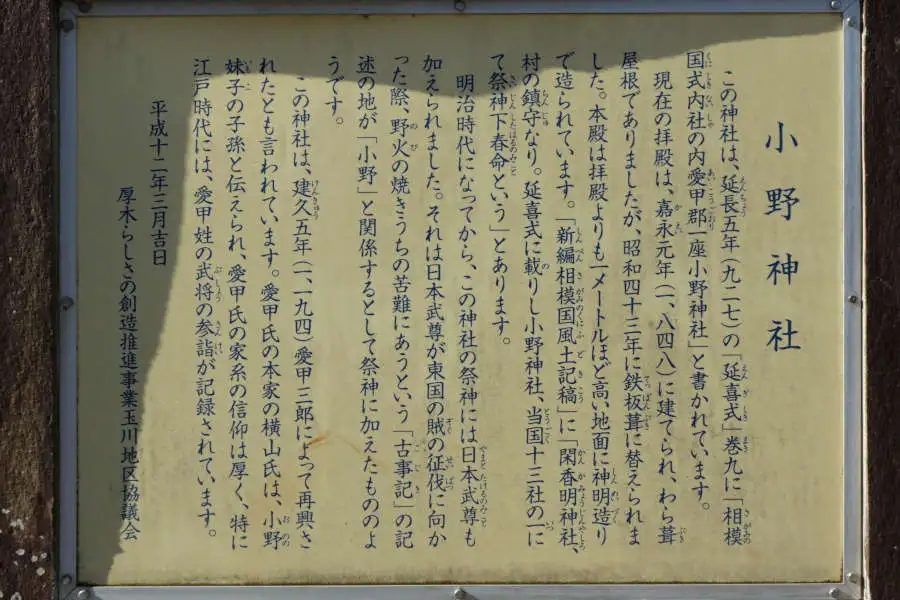 小野神社
この神社は、延長五年（九二七）の「延喜式」巻九に「相模
国式内社の内愛甲郡一座小野神社」と書かれています。
現在の拝殿は、嘉永元年（一、八四八）に建てられ、わら葺
屋根でありましたが、昭和四十三年に鉄板葺に替えられま
した。本殿は拝殿よりも一メートルほど高い地面に神明造り
で造られています。「新編相模国風土記稿」に「閑香明神社、
村の鎮守なり。延喜式に載りし小野神社、当国十三社の一に
て祭神下春命という」とあります。
明治時代になってから、この神社の祭神には日本武尊も
加えられました。それは日本武尊が東国の賊の征伐に向か
った際、野火の焼きうちの苦難にあうという「古事記」の記
述の地が「小野」と関係するとして祭神に加えたもののよ
うです。
この神社は、建久五年（一、一九四）愛甲三郎によって再興さ
れたとも言われています。愛甲氏の本家の横山氏は、小野
妹子の子孫と伝えられ、愛甲氏の家系の信仰は厚く、特に
江戸時代には、愛甲姓の武将の参詣が記録されています。
平成十二年三月吉日
厚木・らしさの創造推進事業玉川地区協議会